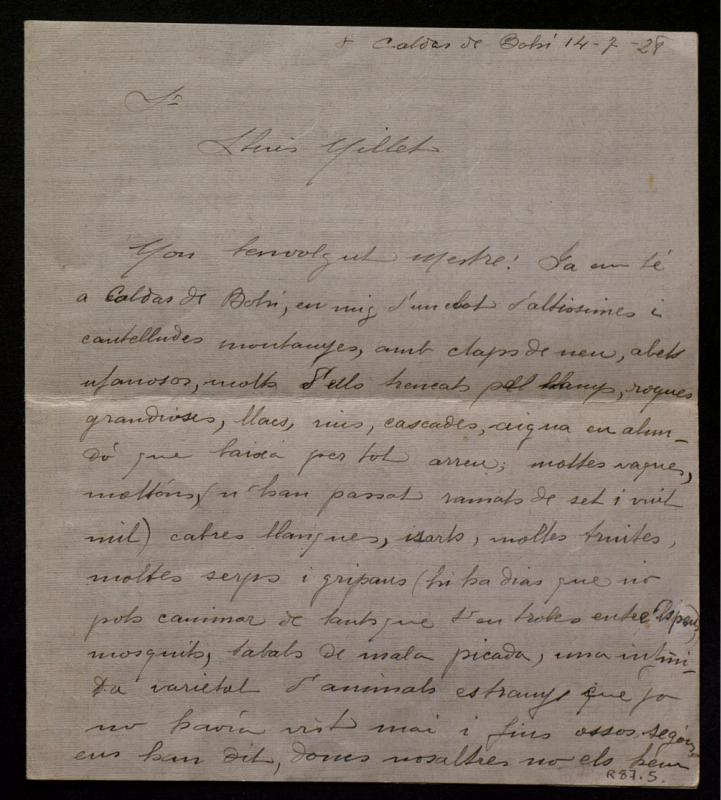 Caldas de Bohí 14-7-28
Sr
Lluis Millet
Mon benvolgut Mestre! Ja em té
a Caldas de Bohí, en mig d'un clot d'altissimes i
cantelludes montanyes, amb claps de neu, abets
ufanosos, molts d'ells trencats pel llamp, roques
grandioses, llacs, rius, cascades, aigua en abun-
dó que baixa per tot arreu; moltes vaques,
moltóns, (n'han passat ramats de set i vuit
mil) cabres llanques, isarts, moltes truites,
moltes serps i gripaus (hi ha dias que no
pots caminar de tants que t'en trobes entre els peus)
mosquits, tabals de mala picada, una infini-
da varietat d'animals estranys que jo
no havia vist mai i fins ossos segons
ens han dit, doncs nosaltres no els hem
R87.5.